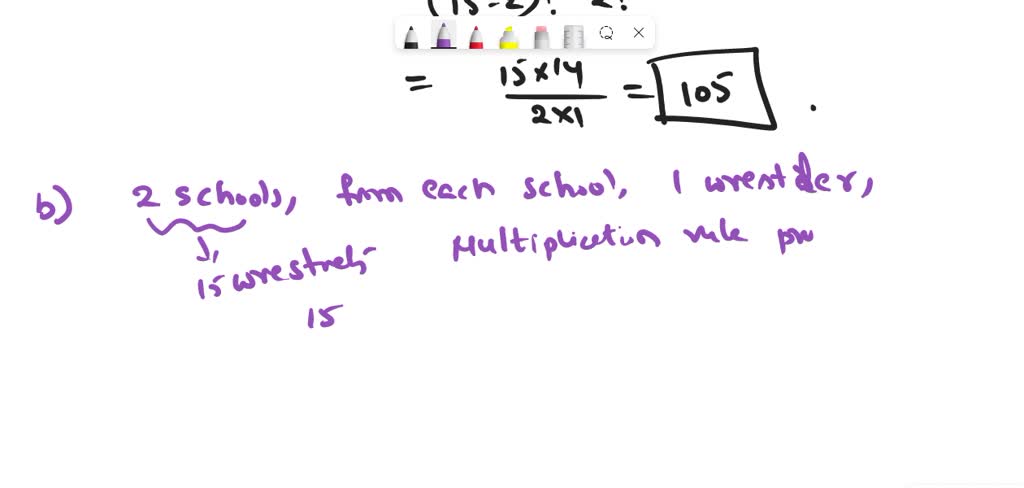 (15-2)! 2!
= 15×14 / 2×1 = 105 .
b) 2 schools, from each school, 1 wrestder,
15 wrestrels Multiplication rule pr
15